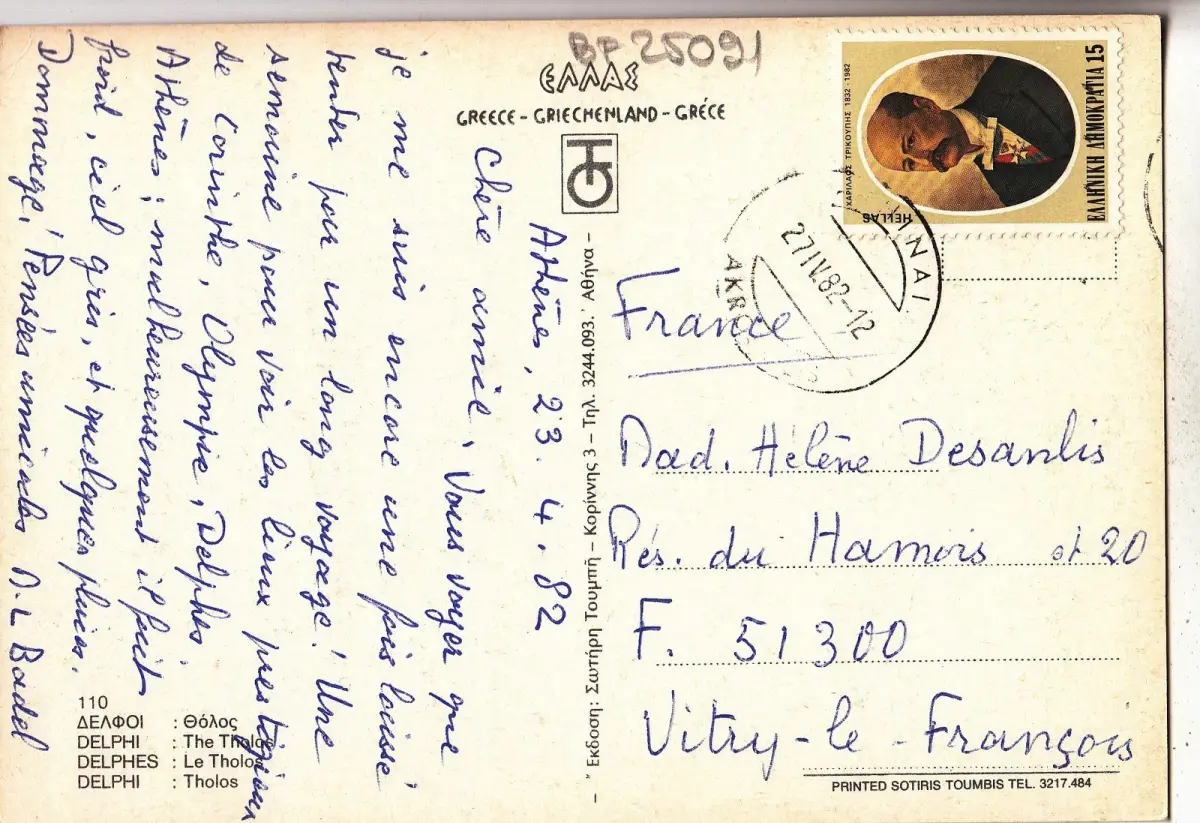 BP 25091
ΕΛΛΑΣ
GREECE - GRIECHENLAND - GRÉCE
Athènes, 23. 4. 82
Chère amie, Vous voyez que
je me suis encore une fois laissé
tenter pour un long voyage! Une
semaine pour voir les lieux prestigieux
de Corinthe, Olympie, Delphes.
Athènes; malheureusement il fait
froid, ciel gris, et quelques pluies.
Dommage! Pensées amicales
Badel
110
ΔΕΛΦΟΙ : Θόλος
DELPHI : The Tholos
DELPHES : Le Tholos
DELPHI : Tholos
" Εκδοση: Σωτήρη Τουμπή – Κορίννης 3 – Τηλ. 3244.093. Αθήνα –
ΧΑΡΙΛΑΟΣ ΤΡΙΚΟΥΠΗΣ 1832-1982
HELLAS
ΕΛΛΗΝΙΚΗ ΔΗΜΟΚΡΑΤΙΑ 15
27IV.82-12
France
Mad. Hélène Desanlis
Rés. du Hamois et 20
F. 51300
Vitry-le-François
PRINTED SOTIRIS TOUMBIS TEL. 3217.484